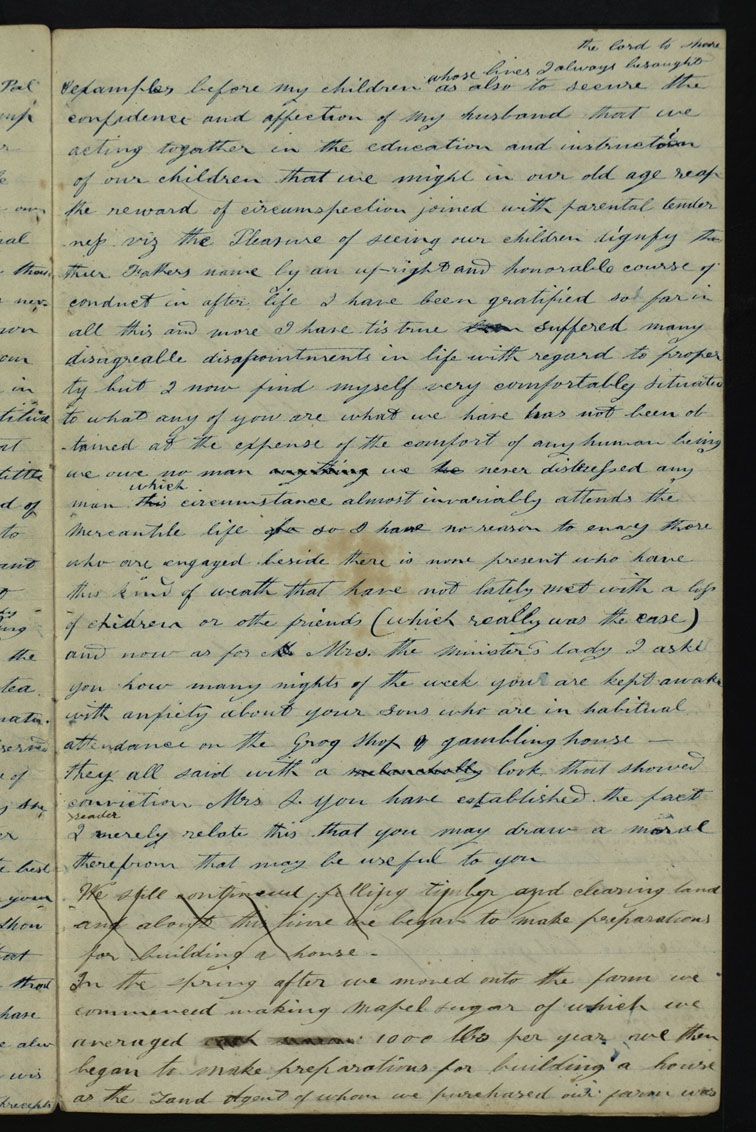 the lord to share
whose lives I always besought
examples before my children as also to secure the
confidence and affection of my husband that we
acting togather in the education and instruction
of our children that we might in our old age reap
the reward of circumspection joined with parental tender
ness viz the Pleasure of seeing our children dignify
thier Fathers name by an up-right and honorable course of
conduct in after life I have been gratified so far in
all this and more I have tis true suffered many
disagreable disapointments in life with regard to proper
ty but I now find myself very comfortably situated
to what any of you are what we have has not been ob
tained at the expense of the comfort of any human being
we owe no man anything we never distressed any
which
man this circumstance almost invariably attends the
mercantile life so I have no reason to envey those
who are engaged beside there is none present who have
this kind of weath that have not lately met with a loss
of children or othe friends (which really was the case)
and now as for Mrs. the minister's lady I askd
you how many nights of the week you are kept awake
with anxiety about your sons who are in habitual
attendance on the Grog shop & gambling house —
they all said with a melancholly look that showed
conviction Mrs S you have established the fact
reader
I merely relate this that you may draw a moral
therefrom that may be useful to you
We still continued felling timber and clearing land
and about this time we began to make preparations
for building a house -
In the spring after we moved onto the farm we
commenced making mapel sugar of which we
averaged each season 1000 lbs per year we then
began to make preparations for building a house
as the Land Agent of whom we purchased our farm was
Pal
own
nal
in
at
little
d of
to
ing
the
tea
e of
er
best
your
that
have
precepts